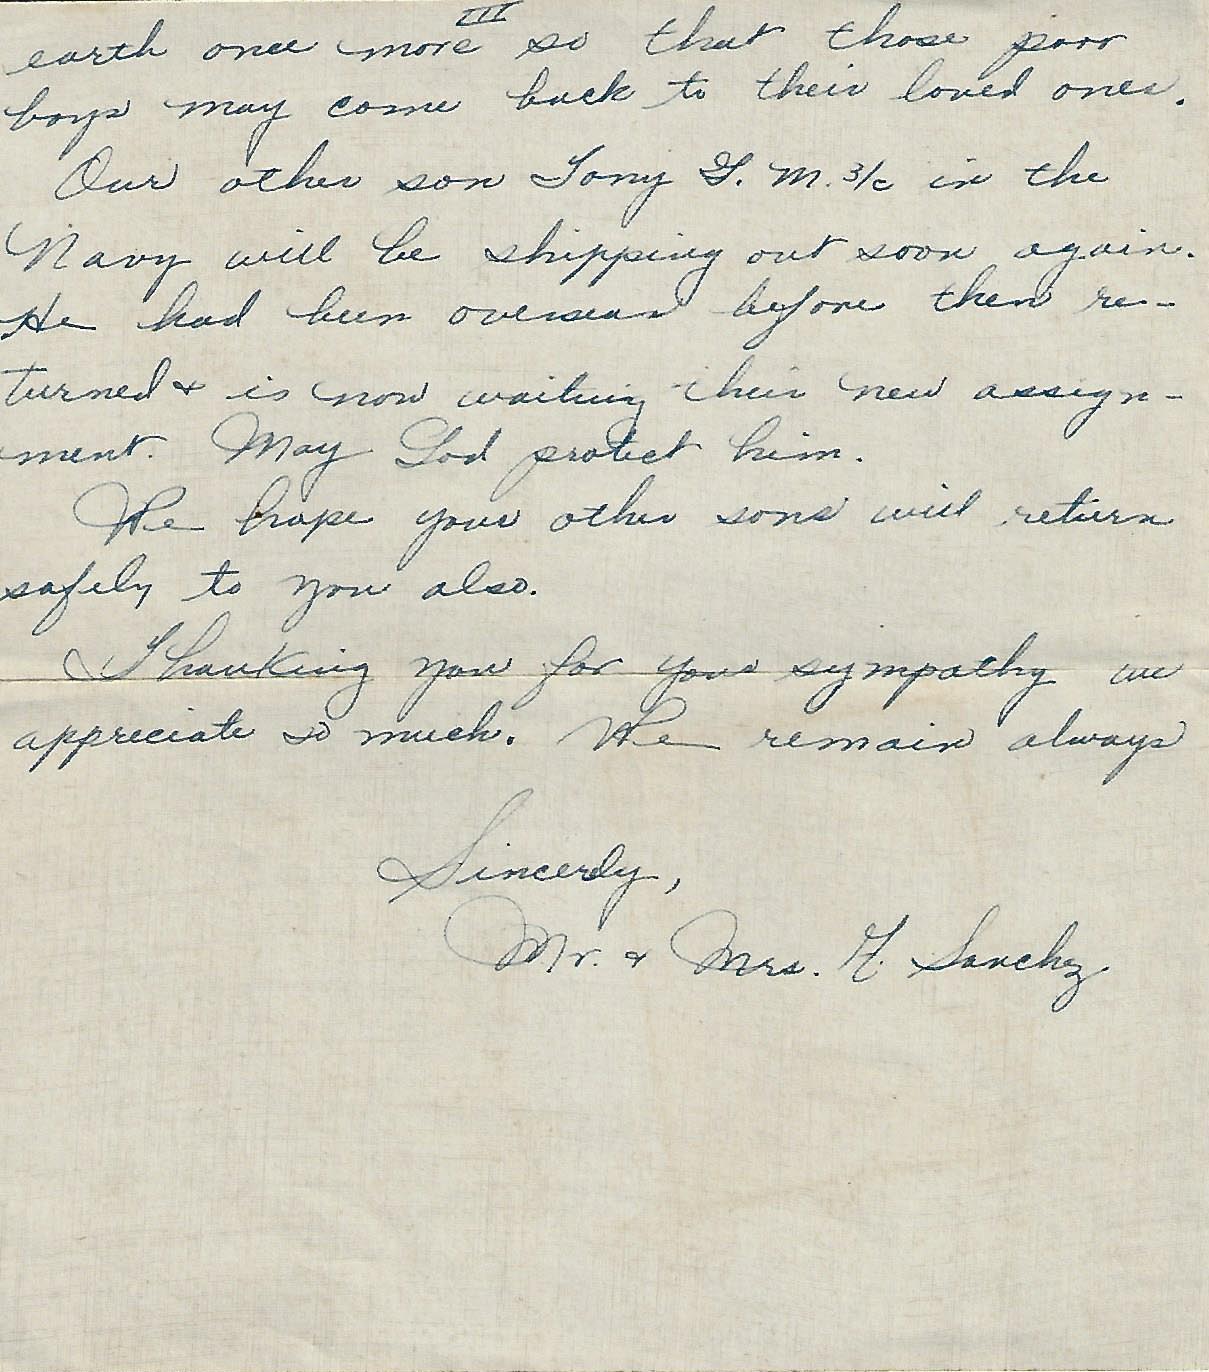 III
earth once more so that those poor
boys may come back to their loved ones.
Our other son Tony G. M. 3/c in the
Navy will be shipping out soon again.
He had been overseas before then re-
turned & is now waiting their new assign-
ment. May God protect him.
We hope your other sons will return
safely to you also.
Thanking you for your sympathy we
appreciate so much. We remain always
Sincerly,
Mr. & Mrs. Sanchz